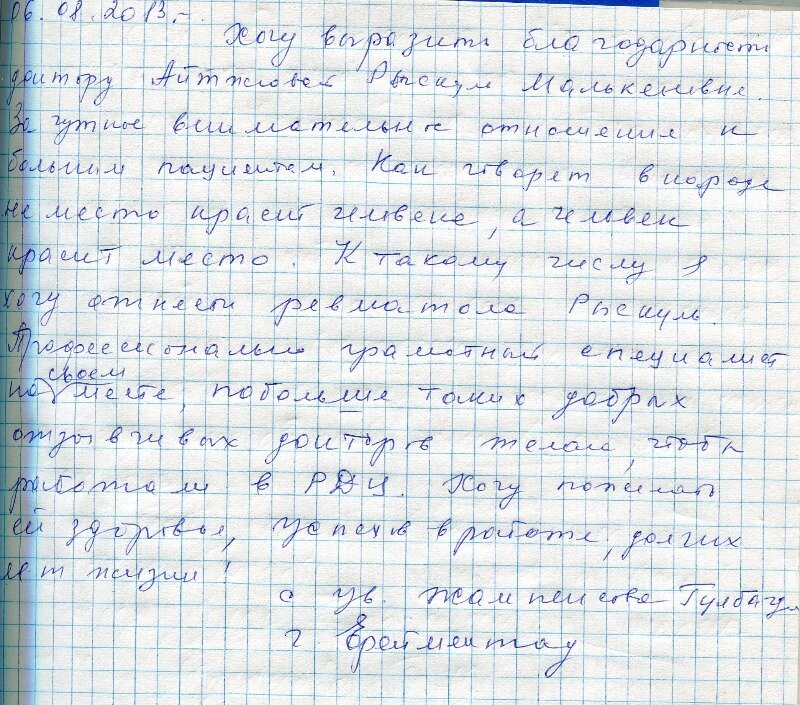 06.08.2013г.
Хочу выразить благодарность
доктору Рыскул Малькеневне.
За чуткое внимательное отношение к
больным пациентам. Как говорят в народе
не место красит человека, а человек
красит место. К такому числу я
хочу отнести ревматолога Рыскуль.
Профессионально грамотный специалист
на своем месте, побольше таких добрых
отзывчивых докторов желаю, чтобы
работали в РДЦ. Хочу пожелать
ей здоровья, успехов в работе, долгих
лет жизни!
с ув.
г. Ерейментау